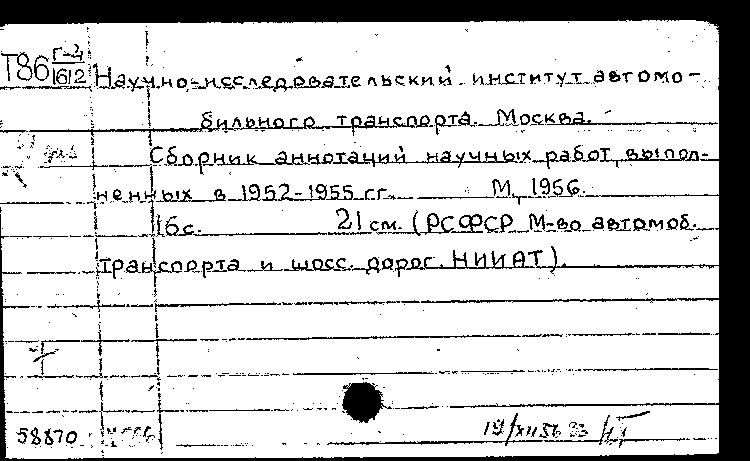 Т86 Г-4
1612
Научно-исследовательский институт автомо-
бильного транспорта. Москва.
Сборник аннотаций научных работ, выпол-
ненных в 1952-1955 гг. М, 1956.
16с. 21 см. (РСФСР М-во автомоб.
транспорта и шосс. дорог. НИИАТ).
58870 19/XII 56